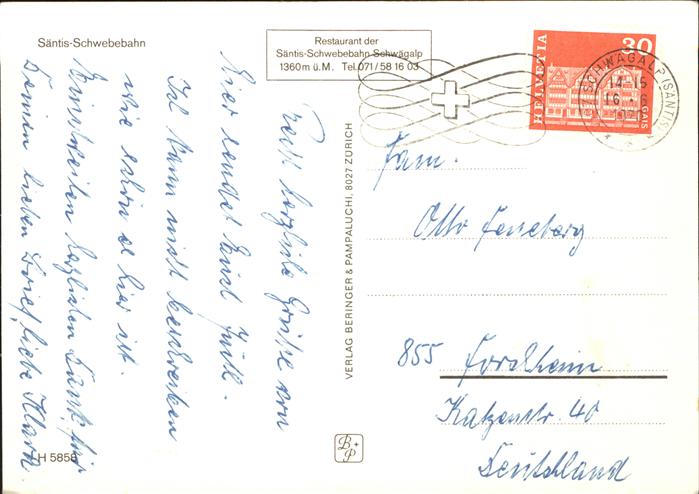 Säntis-Schwebebahn
Restaurant der
Säntis-Schwebebahn Schwägalp
1360 m ü.M. Tel. 071/58 16 03
HELVETIA
30
GAIS
SCHWÄGALP (SÄNTIS)
14-15
Recht herzliche Grüße von
hier sendet Euch
Ich kann nicht beschreiben
wie schön es hier ist.
Einstweilen herzlichen Dank für
Deinen lieben Brief, liebe Klara
H 5858
VERLAG BERINGER & PAMPALUCHI, 8027 ZÜRICH
B + P
Fam.
Otto
855 Forchheim
Katzenstr. 40
Deutschland